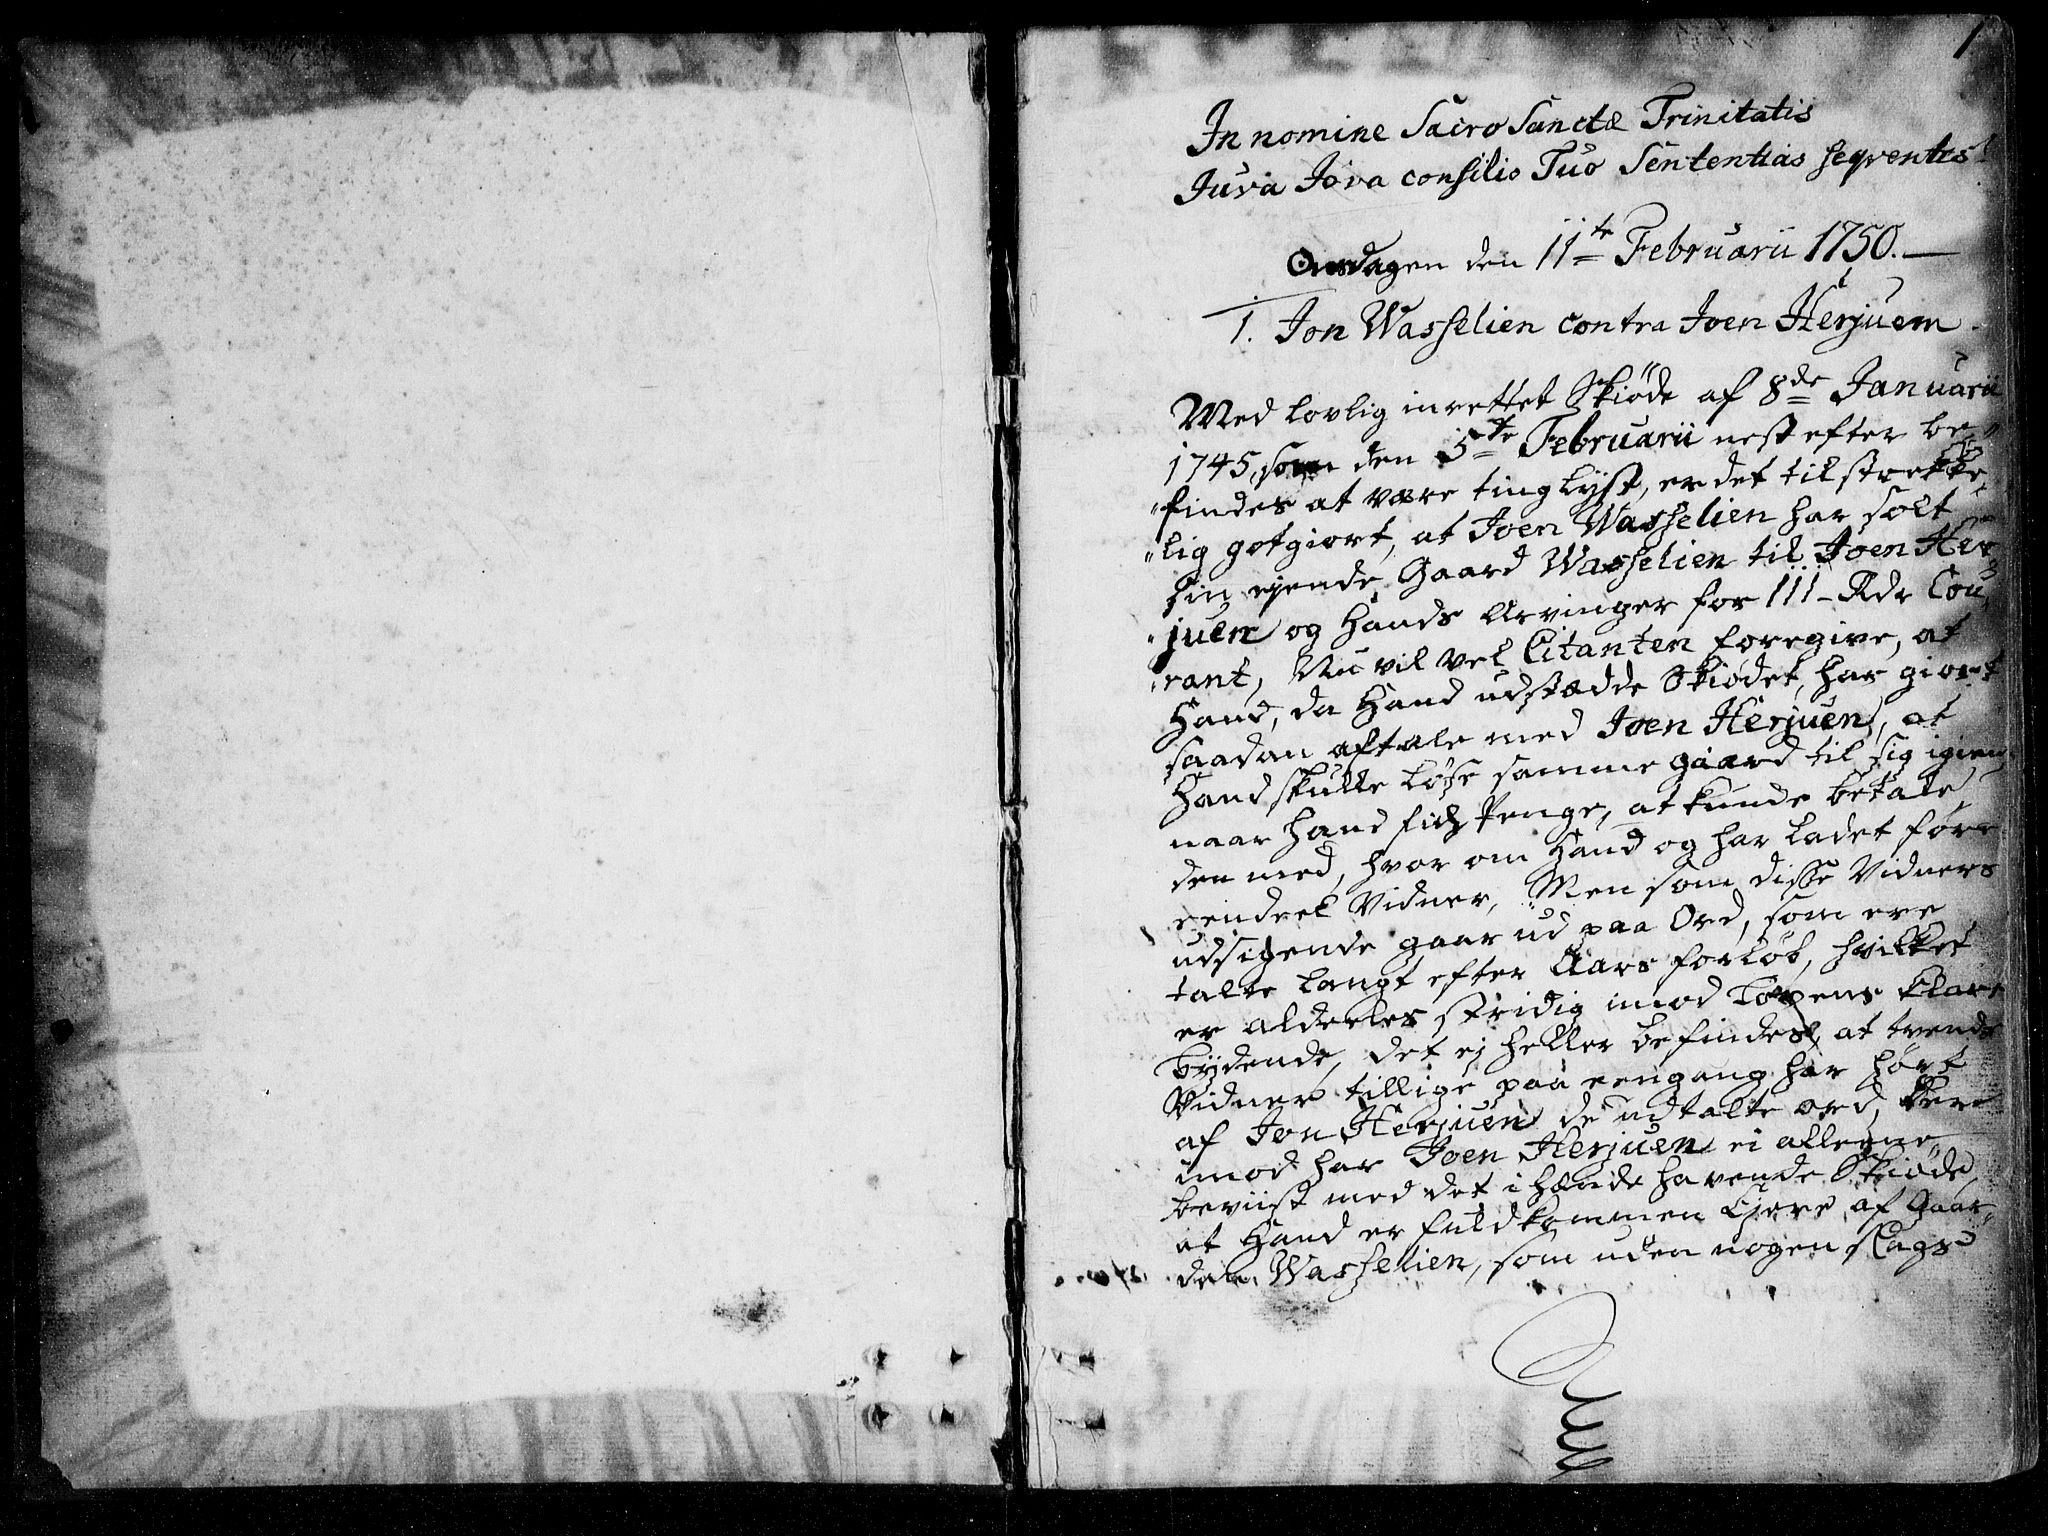 1
In nomine Sacro Sanctæ Trinitatis
Juva Jova consilio Tuo Sententias seqventes!
Onsdagen den 11te Februarii 1750.
1. Jon Wasselien contra Joen Herjuem.
Med lovlig inrettet Skiöde af 8de Januarii
1745, som den 5te Februarii nest efter be-
findes at være tinglyst, er det tilstrekke-
lig gotgiort, at Joen Wasselien har solt
sin ejende Gaard Wasselien til Joen Her
juen og Hands Arvinger for 111 Rdr Cou-
rant, Nu vil vel Citanten foregive, at
Hand, da Hand udstædde Skiödet, har giort
saadan aftale med Joen Herjuen, at
Hand skulle løse samme gaard til sig igien,
naar hand fich Penge, at kunde betale
den med, hvor om Hand og har ladet føre
eendeel Vidner, Men som disse Vidners
udsigende gaar ud paa Ord, som ere
talte langt efter Aars forløb, hvilket
er alderles stridig imod Lovens klare
Bydende, det ej heller befindes, at tvende
Vidner tillige paa eengang har hørt
af Jon Herjuen de udtalte ord, Der
imod har Joen Herjuen ei allene
beviist med det i hænde havende Skiöde,
at Hand er fuldkommen Ejere af Gaar-
den Wasselien, som uden nogen slags